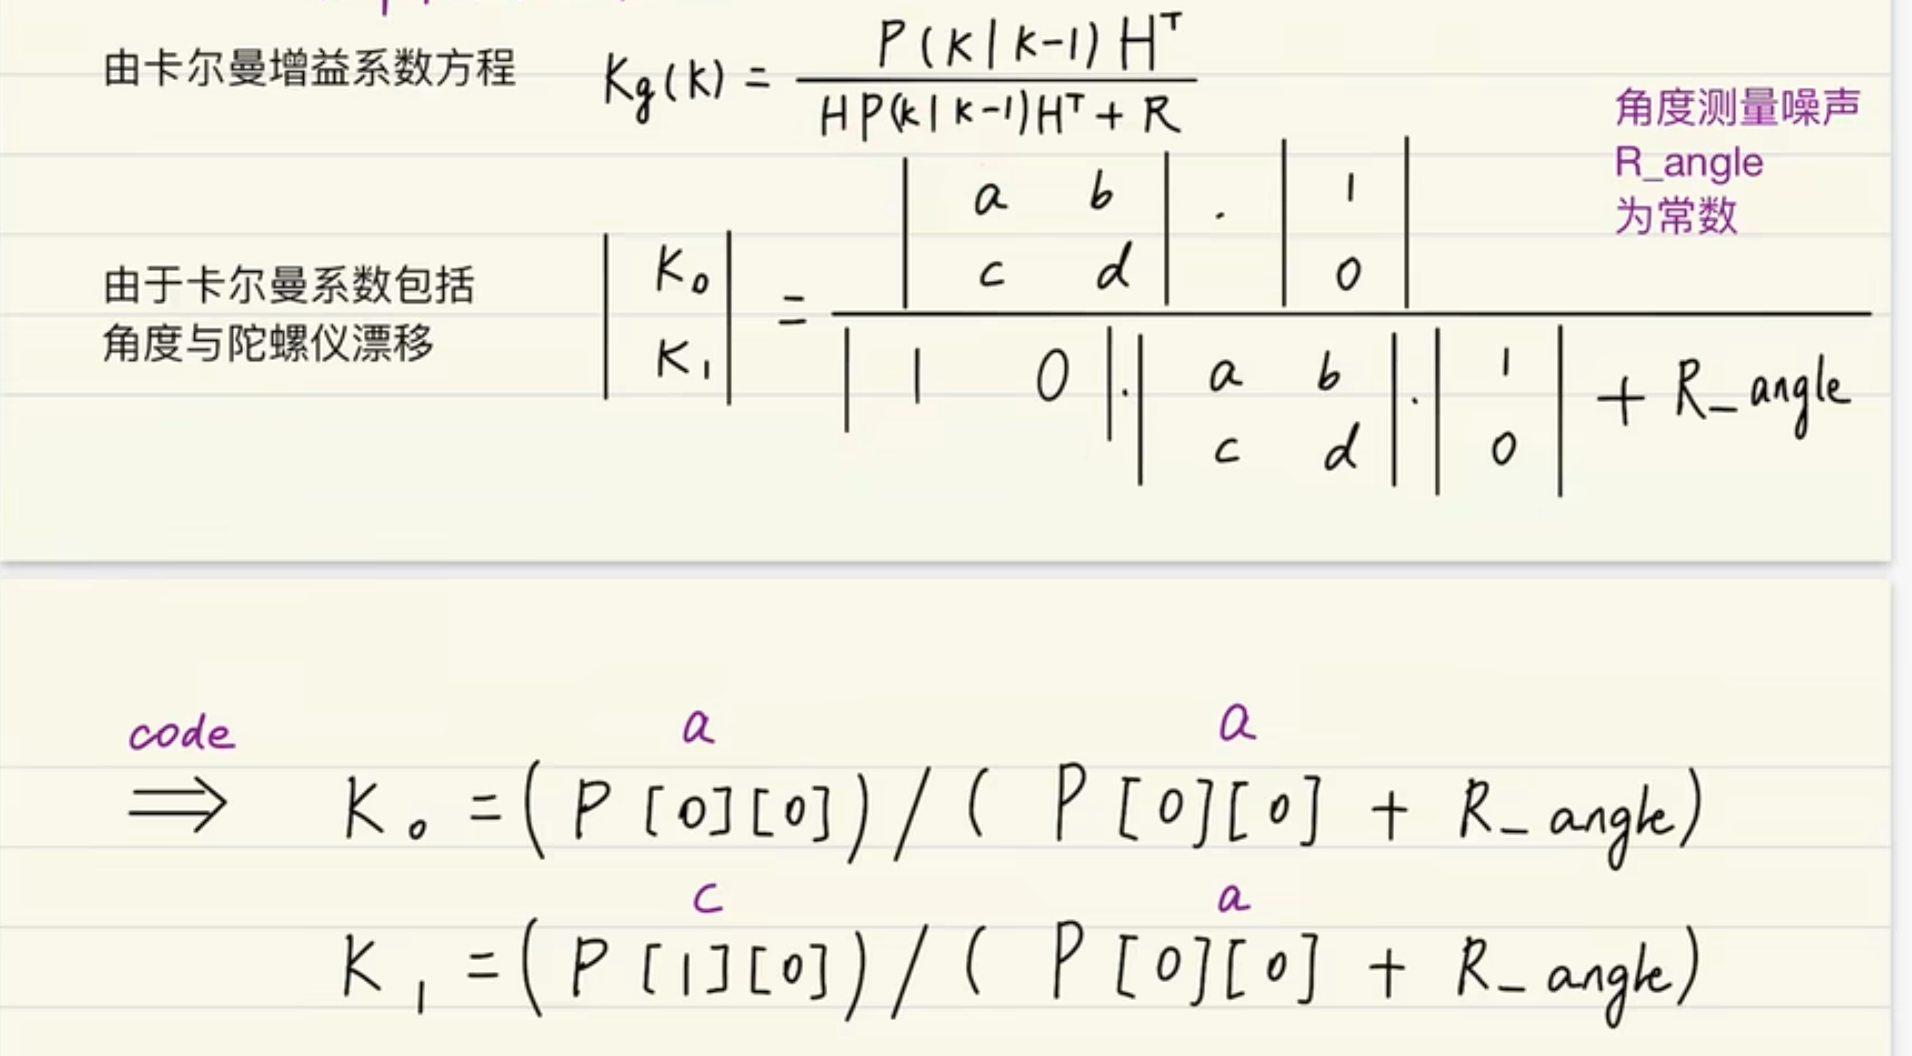 由卡尔曼增益系数方程 Kg(k) = P(k|k-1)Hᵀ / HP(k|k-1)Hᵀ + R
角度测量噪声
R_angle
为常数
由于卡尔曼系数包括
角度与陀螺仪漂移
| K₀ |
| K₁ |
=
| a b | · | 1 |
| c d | | 0 |
| 1 0 | · | a b | · | 1 | + R_angle
| c d | | 0 |
code a a
⇒ K₀ = (P[0][0]) / (P[0][0] + R_angle)
c a
K₁ = (P[1][0]) / (P[0][0] + R_angle)